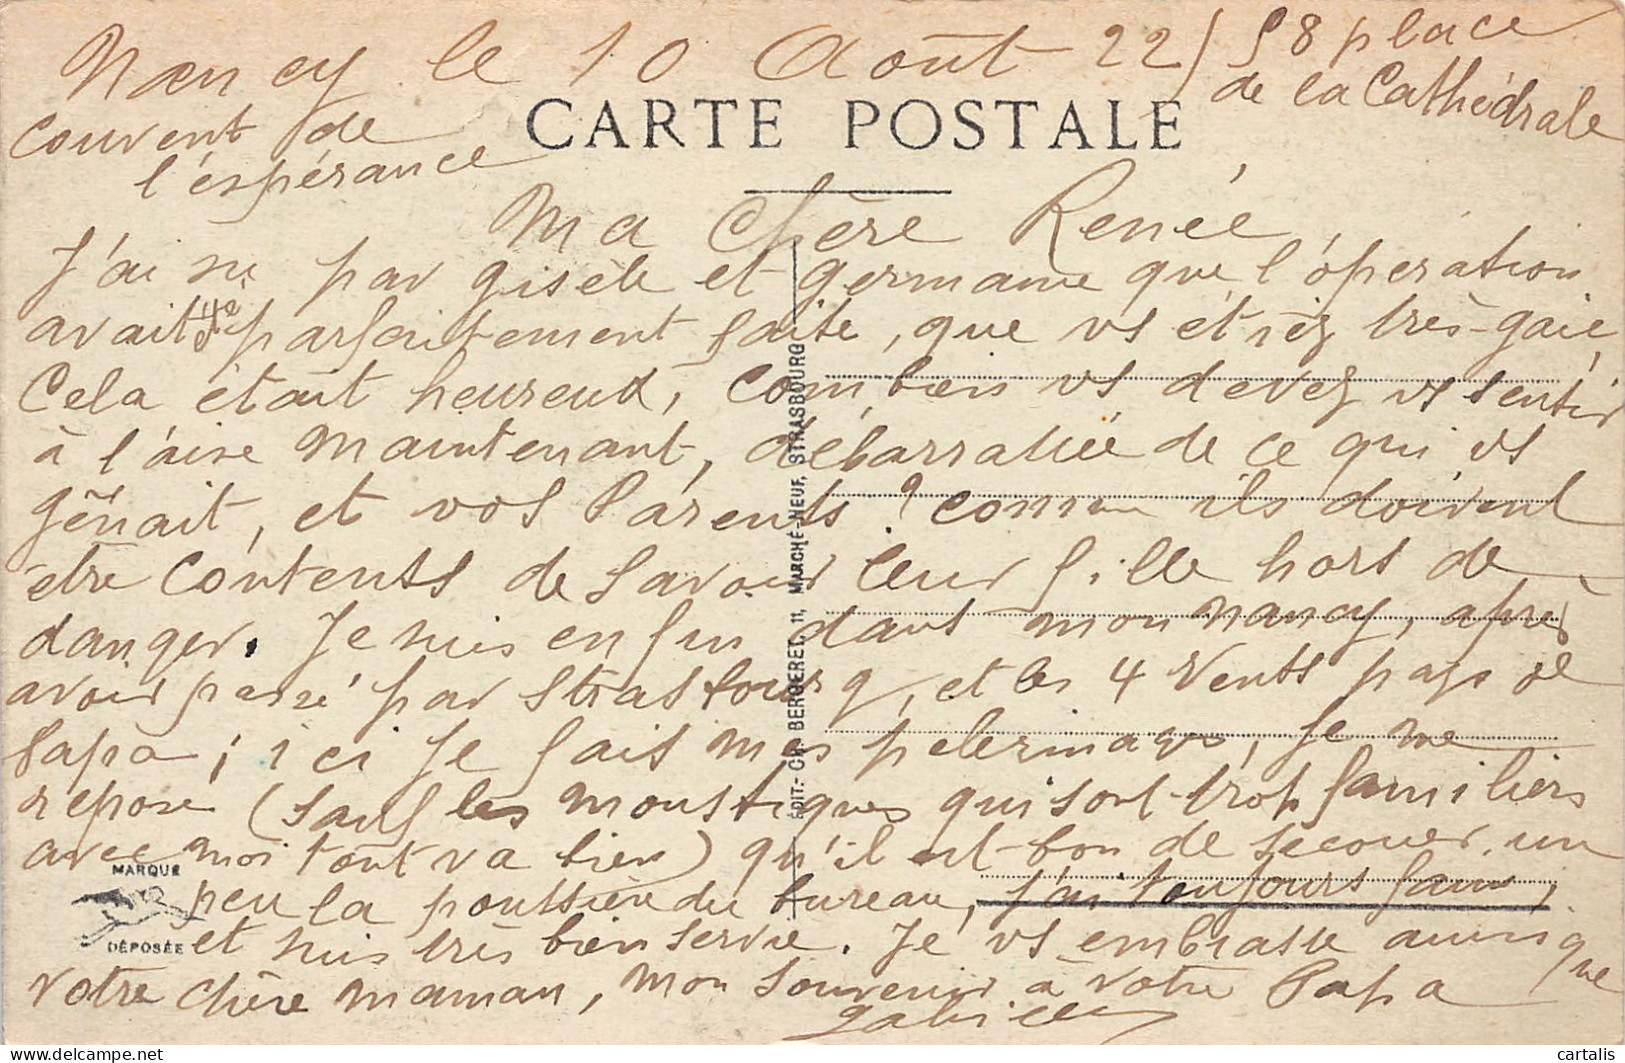 Nancy le 10 Août 22 / 58 place
de la Cathédrale
CARTE POSTALE
couvent de
l'éspérance
Ma Chère Renée,
J'ai su par gisèle et germaine que l'opération
avait été parfaitement faite, que vs étiéz très-gaie,
Cela était heureux, combien vs devez vs sentir
à l'aise maintenant, débarrassée de ce qui vs
gênait, et vos Parents ? comme ils doivent
être Contents de savoir leur fille hors de
danger. Je suis enfin dans mon nancy, après
avoir passé par Strasbourg, et les 4 Vents pays de
papa ; ici je fais mes pelerinages, je me
repose (sauf les moustiques qui sont-trop familiers
avec moi tout va bien) qu'il est-bon de secouer un
peu la poussière du bureau, j'ai toujours faim,
et suis très bien servie. Je vs embrasse ainsi que
votre chère maman, mon souvenir à votre Papa
EDIT.- CH. BERGERET, 11, MARCHÉ-NEUF, STRASBOURG
MARQUE
DÉPOSÉE
cartalis